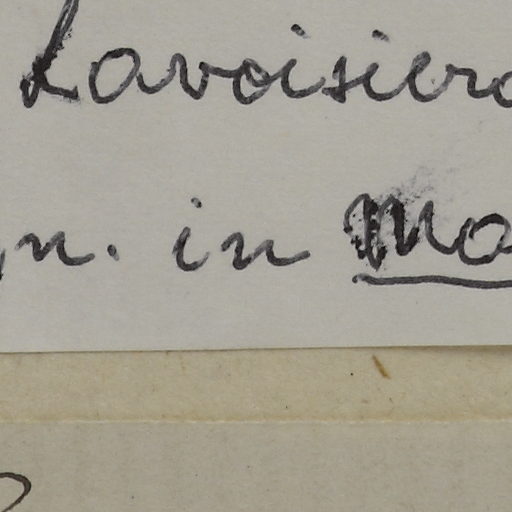 Lavoisiera
n. in Mo